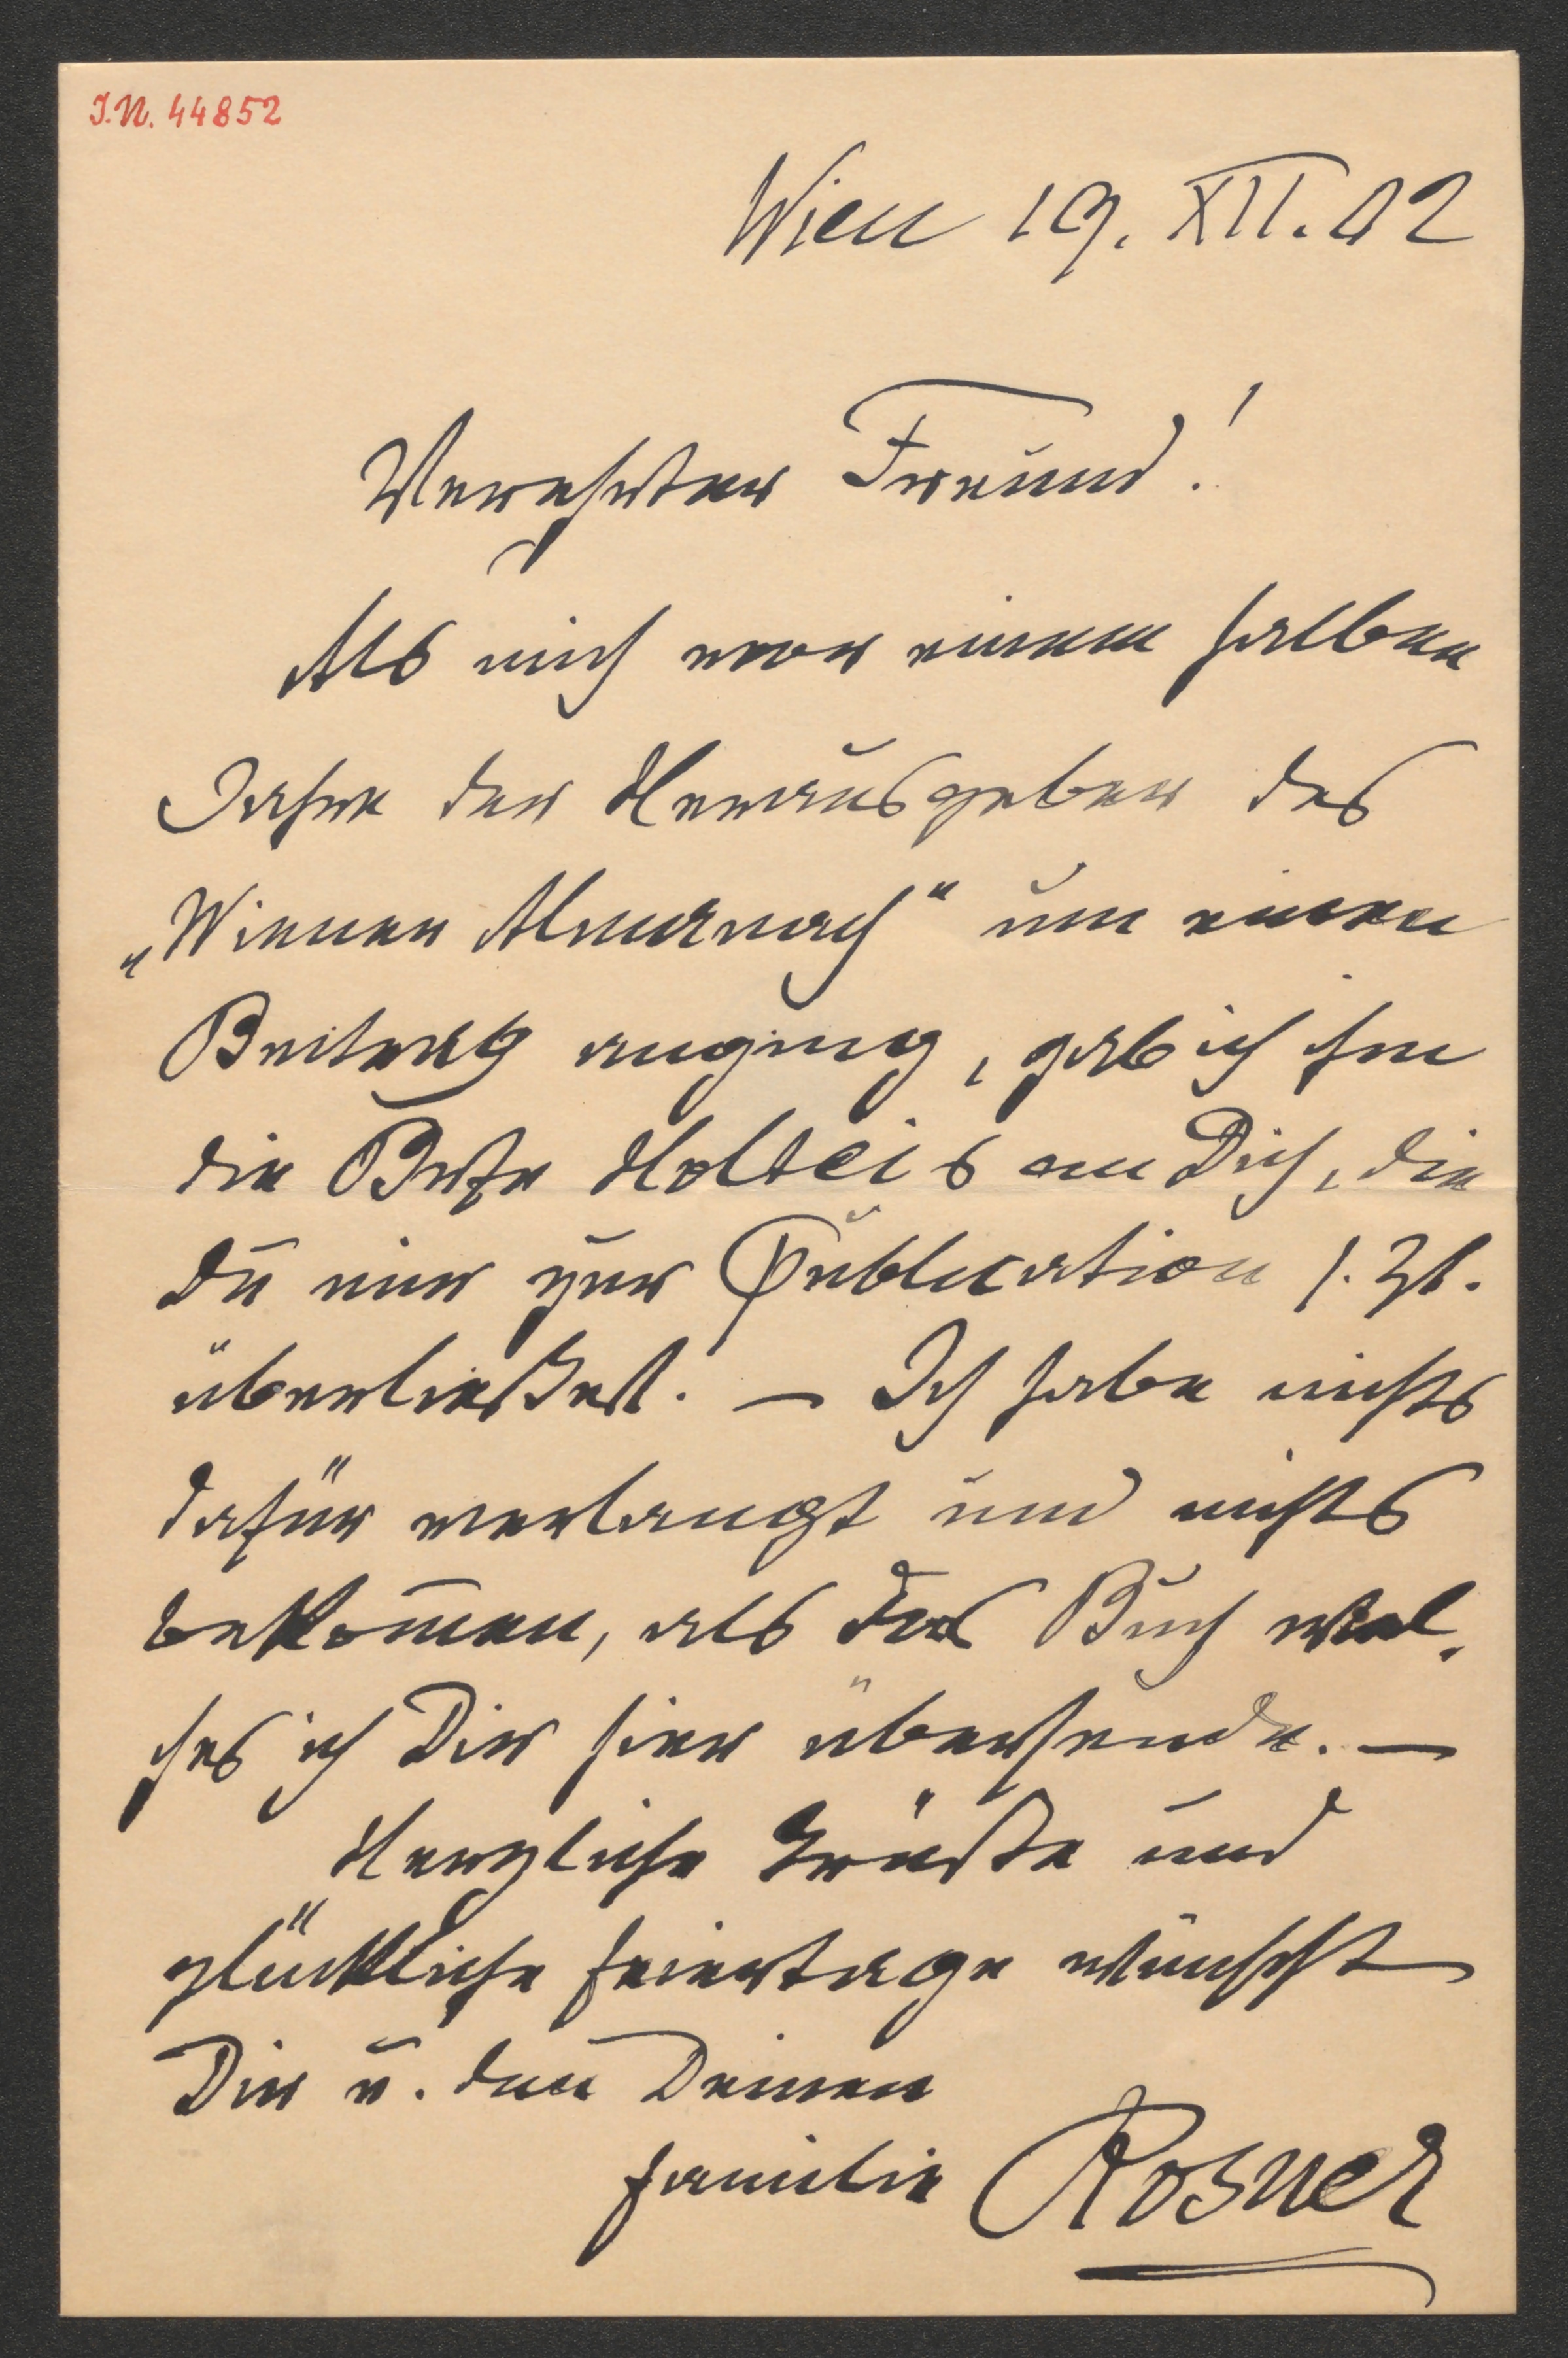 I.N. 44852
Wien 19. XII. 92
Verehrter Freund!
Als mich vor einem halben
Jahre der Herausgeber des
„Wiener Almanach“ um einen
Beitrag anging, gab ich ihm
die Briefe Holteis an Dich, die
Du mir zur Publication s. Zt.
überließest. – Ich habe nichts
dafür verlangt und nichts
bekom̄en, als das Buch wel-
ches ich Dir hier übersende. –
Herzliche Grüße und
glückliche Feiertage wünscht
Dir u. den Deinen
Familie Rosner